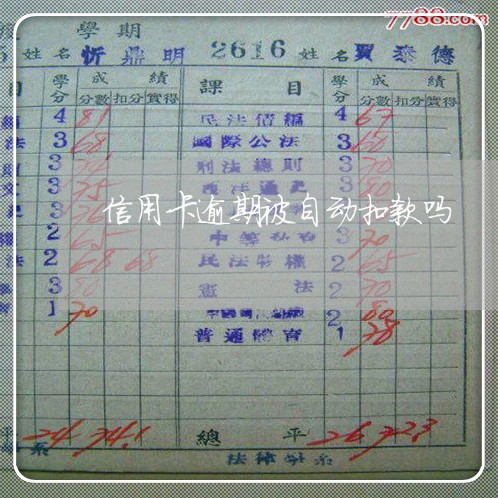 7788.com
學期
姓名 忻鼎明 2616 姓名 賈泰德
目 學分 成績 課目 學分 成績
分數 扣分 實得 分數 扣分 實得
4 81 民法債編 4 67
法 3 68 國際公法 3 60
3 刑法總則 3 70
3 75 3 80
信用卡逾期被自动扣款吗
2 65 3 70
法 2 68 68 民法物權 2 65
3 80 憲法 2 70
1 70 2 80
普通體育 1 78
平 24 74.1 總平 26 72.3
系 法律學系